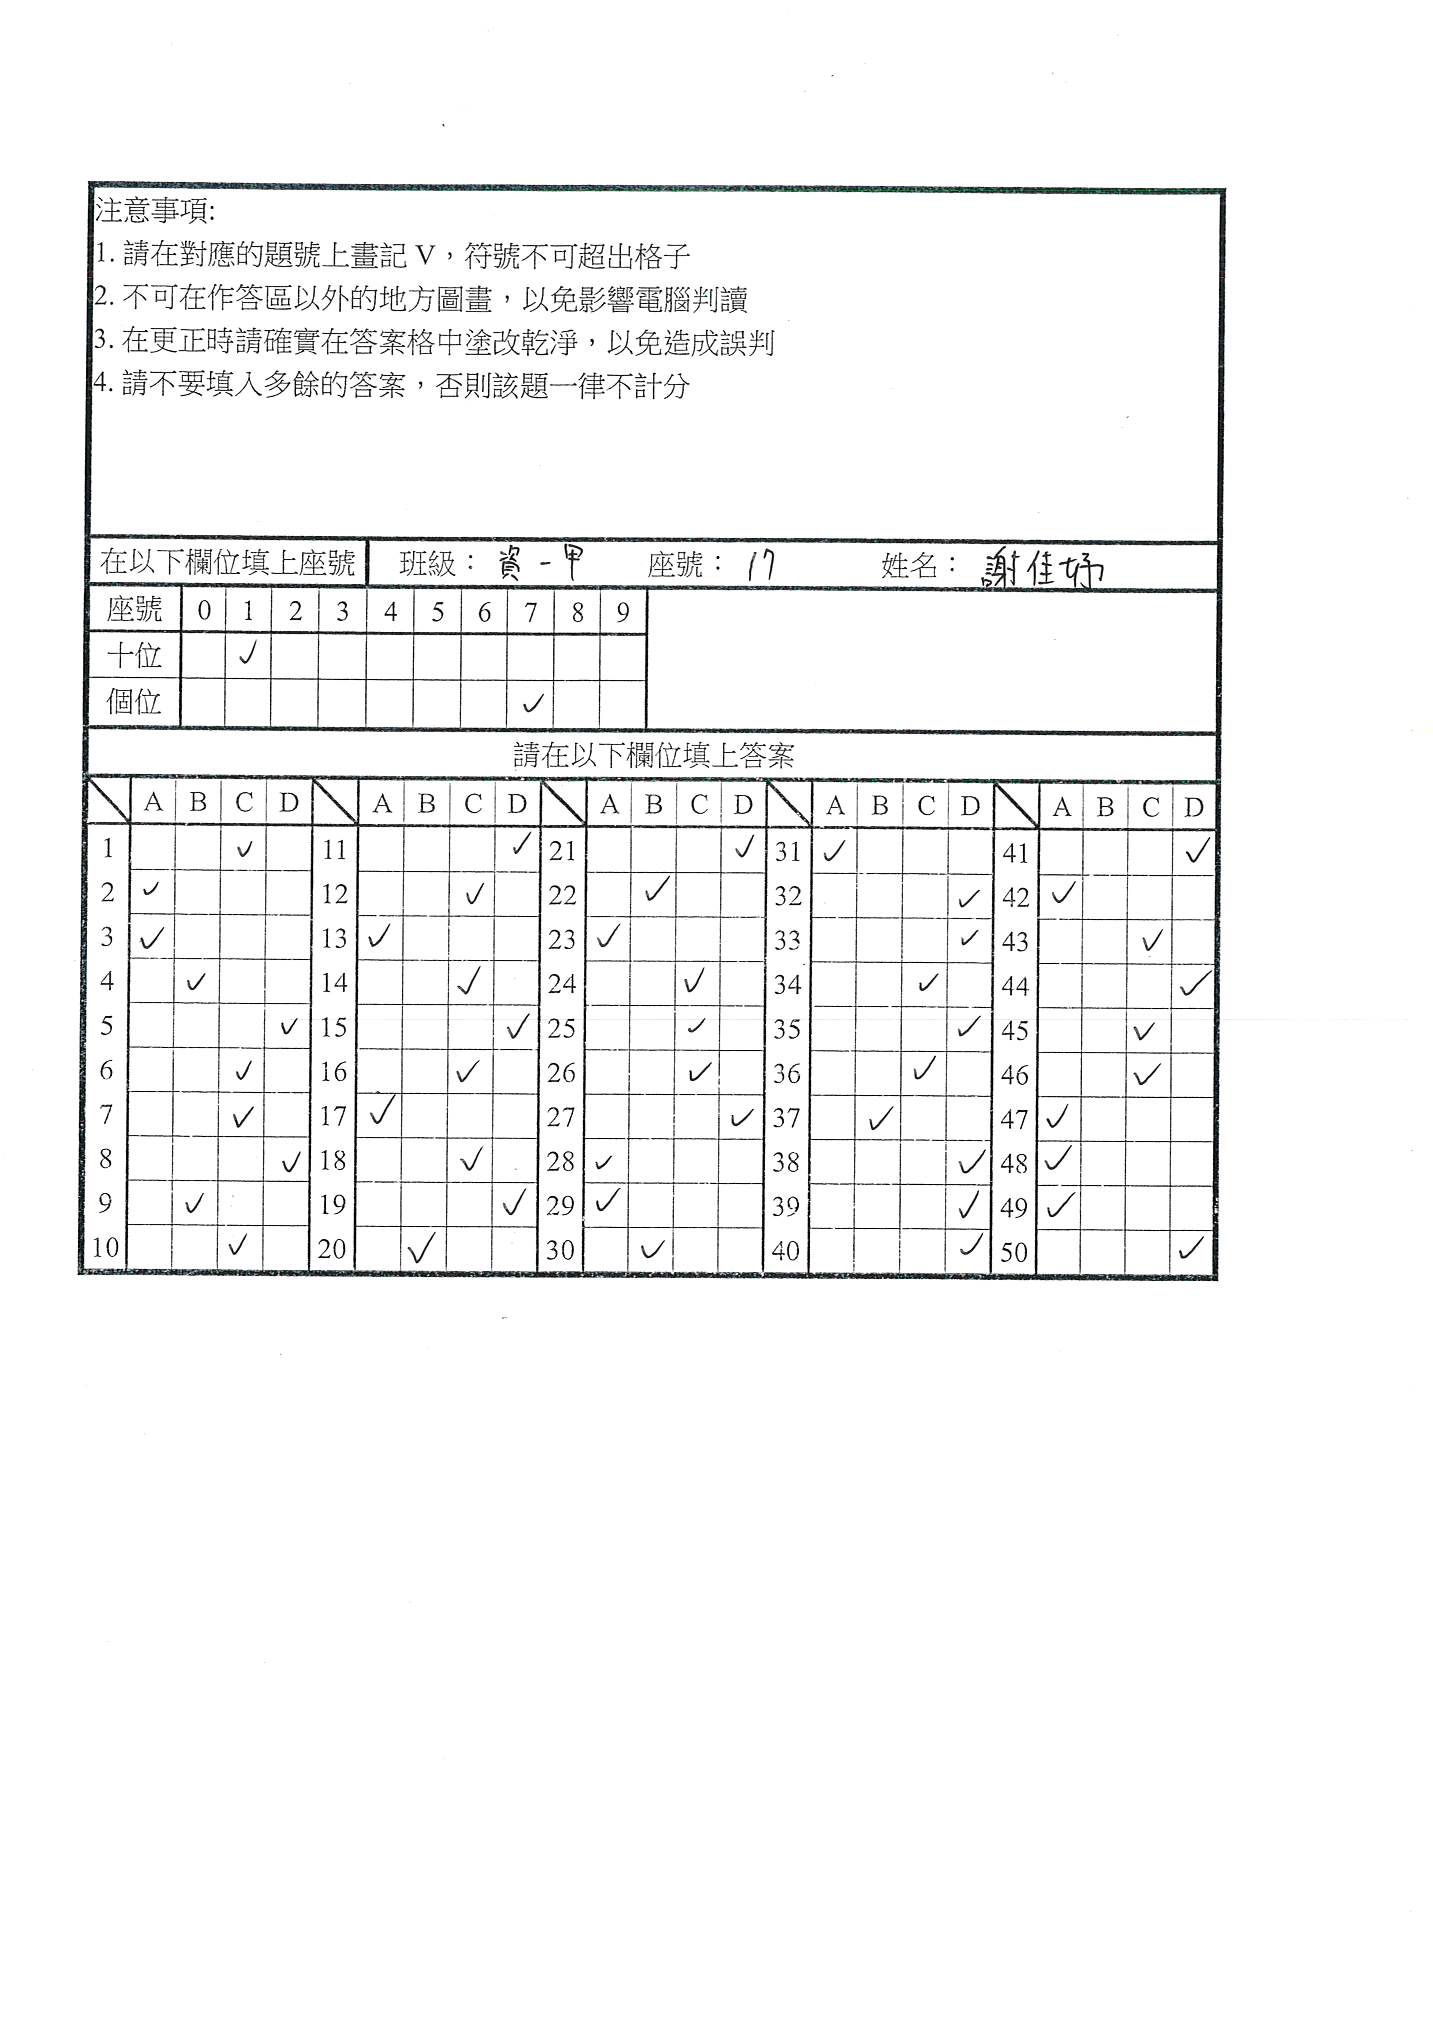 注意事項:
1. 請在對應的題號上畫記 V，符號不可超出格子
2. 不可在作答區以外的地方圖畫，以免影響電腦判讀
3. 在更正時請確實在答案格中塗改乾淨，以免造成誤判
4. 請不要填入多餘的答案，否則該題一律不計分
在以下欄位填上座號 班級：資一甲 座號：17 姓名：謝佳妤
座號 0 1 2 3 4 5 6 7 8 9
十位 ✓
個位 ✓
請在以下欄位填上答案
A B C D A B C D A B C D A B C D A B C D
1 ✓ 11 ✓ 21 ✓ 31 ✓ 41 ✓
2 ✓ 12 ✓ 22 ✓ 32 ✓ 42 ✓
3 ✓ 13 ✓ 23 ✓ 33 ✓ 43 ✓
4 ✓ 14 ✓ 24 ✓ 34 ✓ 44 ✓
5 ✓ 15 ✓ 25 ✓ 35 ✓ 45 ✓
6 ✓ 16 ✓ 26 ✓ 36 ✓ 46 ✓
7 ✓ 17 ✓ 27 ✓ 37 ✓ 47 ✓
8 ✓ 18 ✓ 28 ✓ 38 ✓ 48 ✓
9 ✓ 19 ✓ 29 ✓ 39 ✓ 49 ✓
10 ✓ 20 ✓ 30 ✓ 40 ✓ 50 ✓